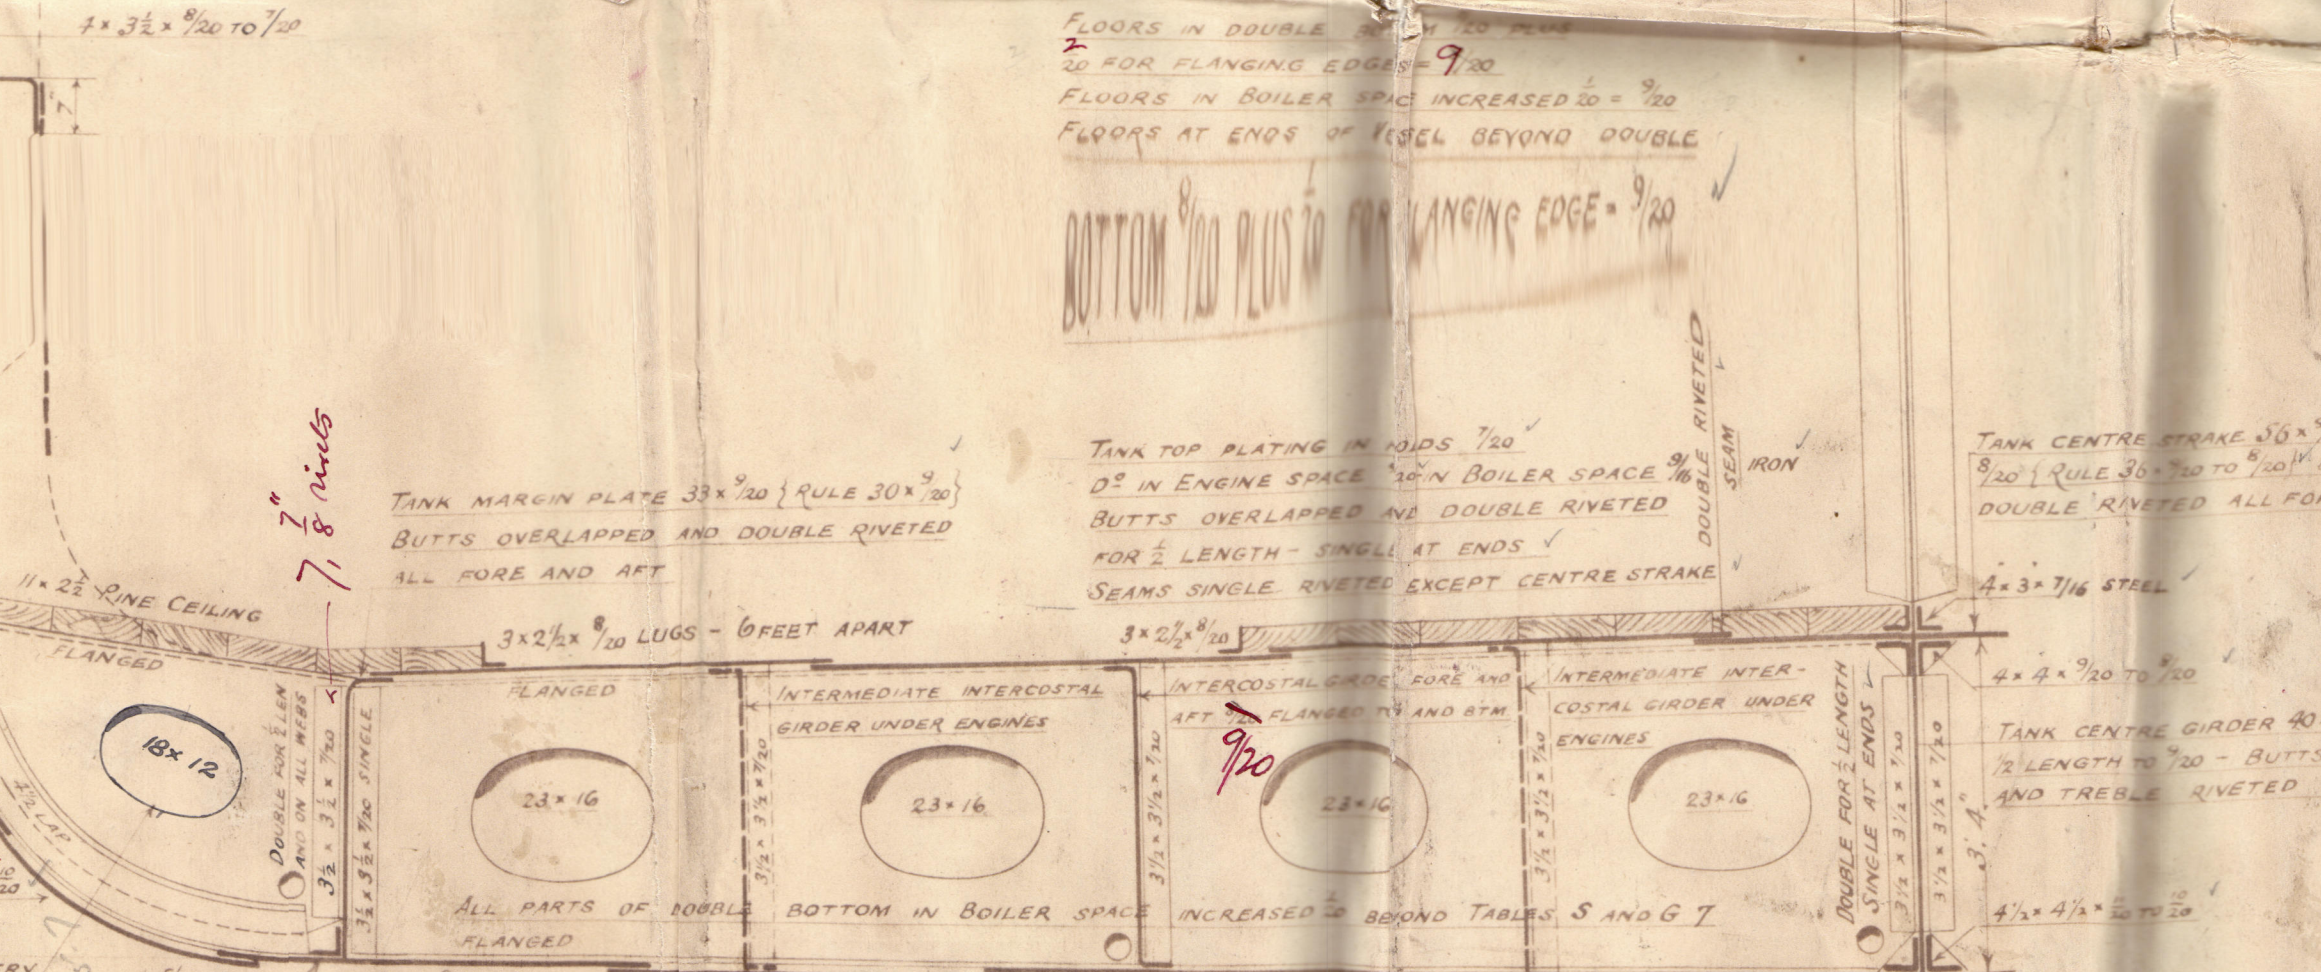 4 × 3½ × 8/20 TO 7/20
7"
FLOORS IN DOUBLE /20 PLUS
2/20 FOR FLANGING EDGES = 9/20
FLOORS IN BOILER SPACE INCREASED 1/20 = 9/20
FLOORS AT ENDS OF VESSEL BEYOND DOUBLE
BOTTOM 8/20 PLUS 1/20 FOR FLANGING EDGE = 9/20
DOUBLE RIVETED
SEAM
7, 7/8" rivets
TANK MARGIN PLATE 33 × 9/20 {RULE 30 × 9/20}
BUTTS OVERLAPPED AND DOUBLE RIVETED
ALL FORE AND AFT
TANK TOP PLATING IN HOLDS 7/20
Dº IN ENGINE SPACE /20 IN BOILER SPACE 9/16 IRON
BUTTS OVERLAPPED AND DOUBLE RIVETED
FOR ½ LENGTH - SINGLE AT ENDS
SEAMS SINGLE RIVETED EXCEPT CENTRE STRAKE
TANK CENTRE STRAKE 56 ×
8/20 {RULE 36 × /20 TO 8/20}
DOUBLE RIVETED ALL
4 × 3 × 7/16 STEEL
11 × 2½ PINE CEILING
3 × 2½ × 8/20 LUGS - 6 FEET APART
3 × 2½ × 8/20
FLANGED
FLANGED
INTERMEDIATE INTERCOSTAL
GIRDER UNDER ENGINES
INTERCOSTAL GIRDER FORE AND
AFT FLANGED TOP AND BTM
9/20
INTERMEDIATE INTER-
COSTAL GIRDER UNDER
ENGINES
4 × 4 × 9/20 TO 8/20
TANK CENTRE GIRDER 40
½ LENGTH TO 9/20 - BUTTS
AND TREBLE RIVETED
18 × 12
23 × 16
23 × 16
23 × 16
23 × 16
DOUBLE FOR ½ LEN
AND ON ALL WEBS
3½ × 3½ × 7/20
3½ × 3½ × 7/20 SINGLE
3½ × 3½ × 7/20
3½ × 3½ × 7/20
3½ × 3½ × 7/20
DOUBLE FOR ½ LENGTH
SINGLE AT ENDS
3½ × 3½ × 7/20
3½ × 3½ × 7/20
3'. 4"
LAP
ALL PARTS OF DOUBLE BOTTOM IN BOILER SPACE INCREASED 1/20 BEYOND TABLES S AND G 7
4½ × 4½ × /20 TO 10/20
FLANGED